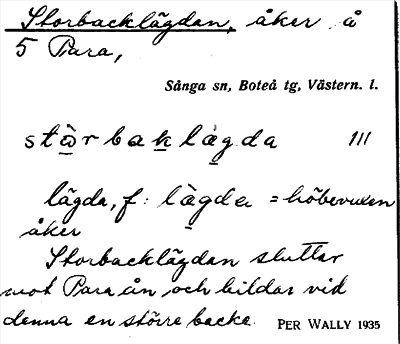 Storbacklägdan, åker å
5 Para,
Sånga sn, Boteå tg, Västern. l.
stȧ̀r bak lȧ̀gda 111
lägda, f: lȧ̀gda = höbevuxen
åker
Storbacklägdan sluttar
mot Para ån och bildar vid
denna en större backe. PER WALLY 1935